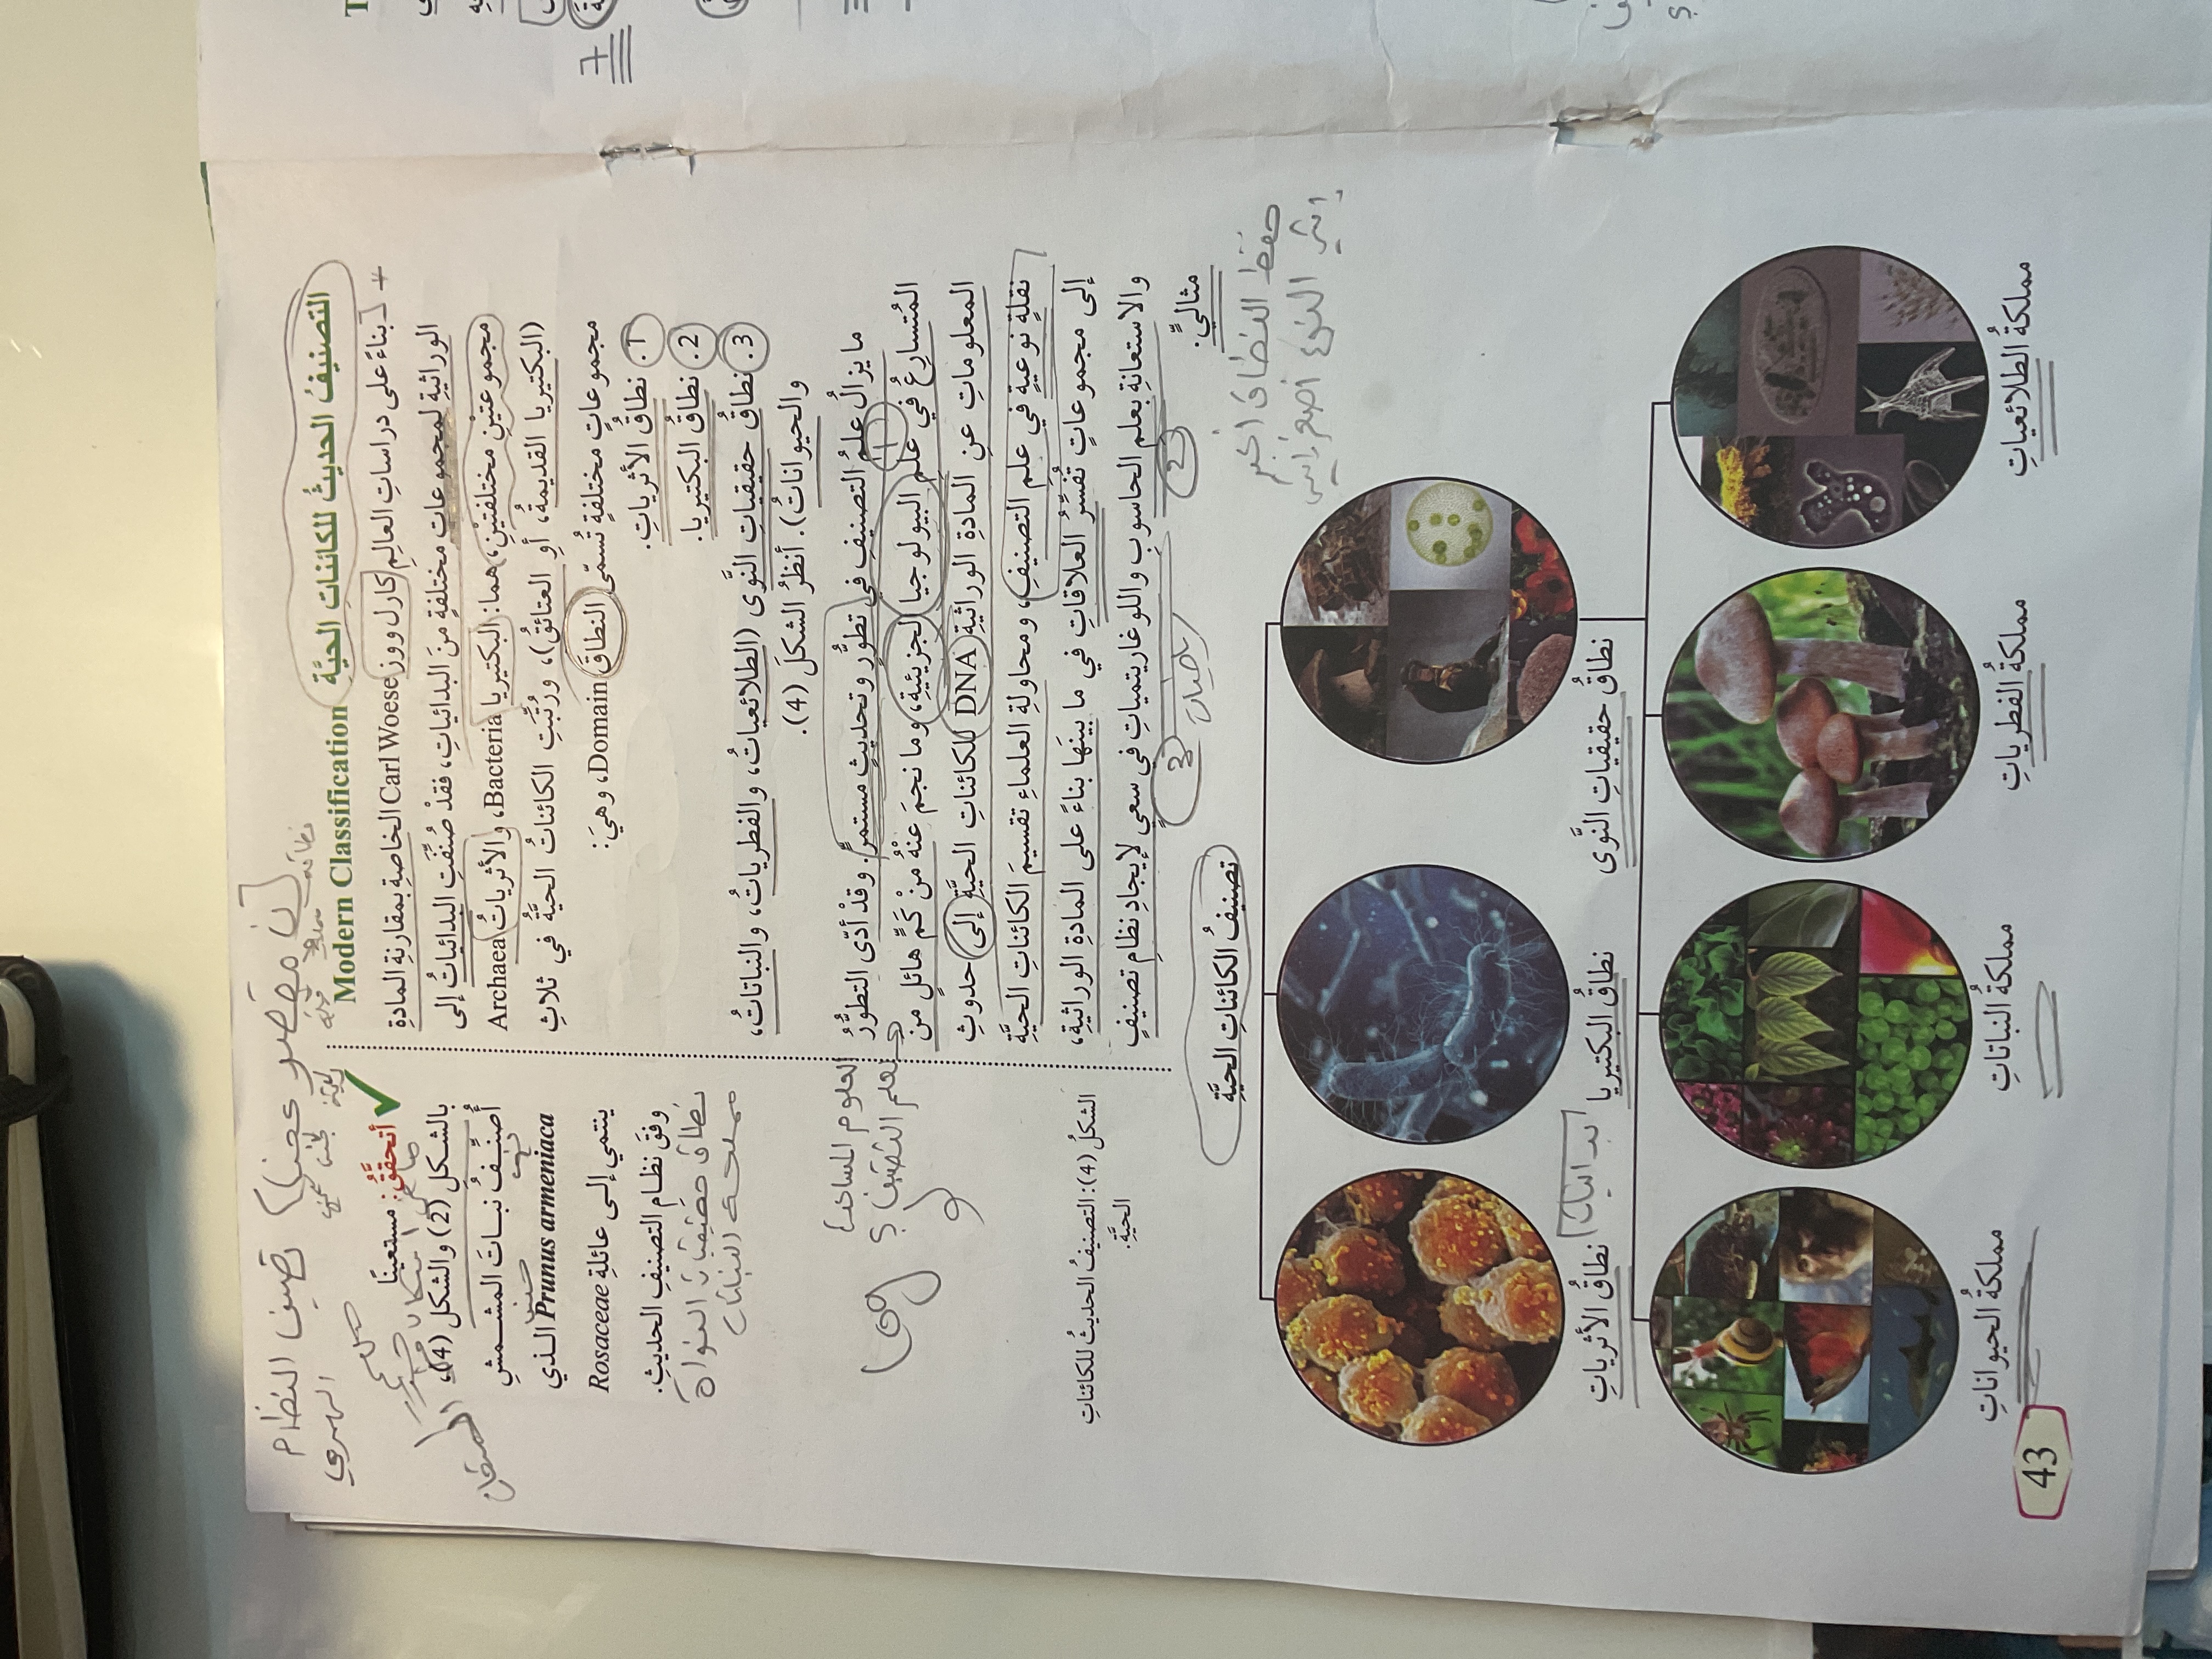 التصنيفُ الحديثُ للكائناتِ الحيَّةِ
Modern Classification
بناءً على دراساتِ العالِمِ كارل ووز Carl Woese الخاصةِ بمقارنةِ المادةِ
الوراثيةِ لمجموعاتٍ مختلفةٍ منَ البدائياتِ، فقدْ صُنِّفَتِ البدائياتُ إلى
مجموعتَيْنِ مختلفتَيْنِ، هما: البكتيريا Bacteria، والأثرياتُ Archaea
(البكتيريا القديمةُ، أوِ العتائقُ)، ورُتِّبَتِ الكائناتُ الحيَّةُ في ثلاثِ
مجموعاتٍ مختلفةٍ تُسمّى النطاقَ Domain، وهيَ:
1. نطاقُ الأثرياتِ.
2. نطاقُ البكتيريا.
3. نطاقُ حقيقياتِ النَّوى (الطلائعياتُ، والفطرياتُ، والنباتاتُ،
والحيواناتُ). أنظرُ الشكلَ (4).
ما يزالُ علمُ التصنيفِ في تطوُّرٍ وتحديثٍ مستمرٍّ. وقدْ أدّى التطوُّرُ
المُتسارِعُ في علمِ البيولوجيا الجزيئيةِ، وما نجمَ عنْهُ منْ كَمٍّ هائلٍ من
المعلوماتِ عنِ المادةِ الوراثيةِ DNA للكائناتِ الحيَّةِ إلى حدوثِ
نقلةٍ نوعيةٍ في علمِ التصنيفِ، ومحاولةِ العلماءِ تقسيمَ الكائناتِ الحيَّةِ
إلى مجموعاتٍ تُفسِّرُ العلاقاتِ في ما بينَها بناءً على المادةِ الوراثيةِ،
والاستعانةِ بعلمِ الحاسوبِ واللوغاريتمياتِ في سعيٍ لإيجادِ نظامِ تصنيفٍ
مثاليٍّ.
1
2
3
حفظ النطاق اكبر
تصنيف النظام
✓ أتحقَّقُ: مستعينًا
بالشكلِ (2) والشكلِ (4)،
أُصنِّفُ نباتَ المشمشِ
Prunus armeniaca الذي
ينتمي إلى عائلةِ Rosaceae
وفقَ نظامِ التصنيفِ الحديثِ.
نطاق حقيقيات النواة
مملكة النباتات
العلوم المساعدة
لعلم التصنيف؟
الشكلُ (4): التصنيفُ الحديثُ للكائناتِ
الحيَّةِ.
تصنيفُ الكائناتِ الحيَّةِ
نطاقُ حقيقياتِ النَّوى
نطاقُ البكتيريا
نطاقُ الأثرياتِ
مملكةُ الطلائعياتِ
مملكةُ الفطرياتِ
مملكةُ النباتاتِ
مملكةُ الحيواناتِ
43
7